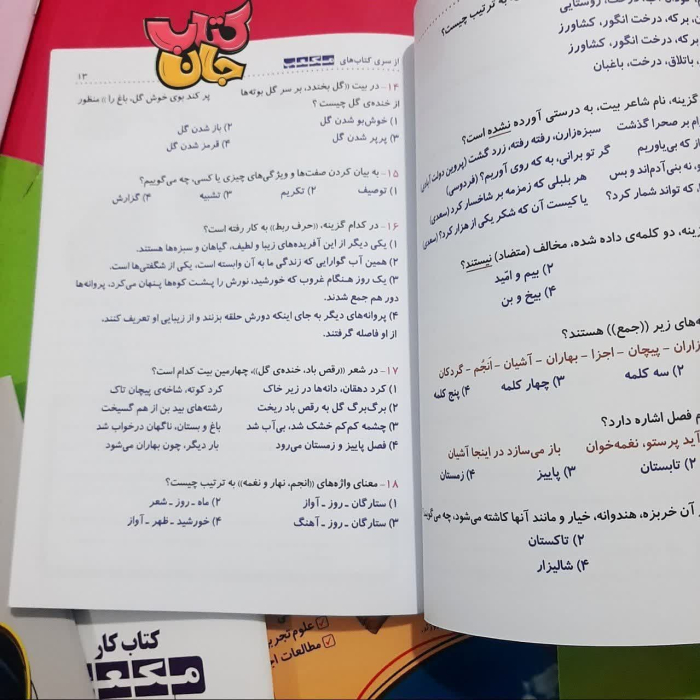 کتاب
جان
از سری کتاب‌های مکعب
۱۳
۱۴- در بیت ((گل بخندد، بر سر گل بوته‌ها پر کند بوی خوش گل، باغ را)) منظور
از خنده‌ی گل چیست؟
۱) خوش‌بو شدن گل ۲) باز شدن گل
۳) پرپر شدن گل ۴) قرمز شدن گل
۱۵- به بیان کردن صفت‌ها و ویژگی‌های چیزی یا کسی، چه می‌گوییم؟
۱) توصیف ۲) تکریم ۳) تشبیه ۴) گزارش
۱۶- در کدام گزینه، ((حرف ربط)) به کار رفته است؟
۱) یکی دیگر از این آفریده‌های زیبا و لطیف، گیاهان و سبزه‌ها هستند.
۲) همین آب گوارایی که زندگی ما به آن وابسته است، یکی از شگفتی‌ها است.
۳) یک روز هنگام غروب که خورشید، نورش را پشت کوه‌ها پنهان می‌کرد، پروانه‌ها
دور هم جمع شدند.
۴) پروانه‌های دیگر به جای اینکه دورش حلقه بزنند و از زیبایی او تعریف کنند،
از او فاصله گرفتند.
۱۷- در شعر ((رقص باد، خنده‌ی گل))، چهارمین بیت کدام است؟
۱) کرد دهقان، دانه‌ها در زیر خاک کرد کوته، شاخه‌ی پیچان تاک
۲) برگ‌برگ گل به رقص باد ریخت رشته‌های بید بن از هم گسیخت
۳) چشمه کم‌کم خشک شد، بی‌آب شد باغ و بستان، ناگهان درخواب شد
۴) فصل پاییز و زمستان می‌رود بار دیگر، چون بهاران می‌شود
۱۸- معنای واژه‌های ((انجم، نهار و نغمه)) به ترتیب چیست؟
۱) ستارگان ـ روز ـ آواز ۲) ماه ـ روز ـ شعر
۳) ستارگان ـ روز ـ آهنگ ۴) خورشید ـ ظهر ـ آواز
به ترتیب چیست؟
درخت، روستایی
بر که، درخت انگور، کشاورز
برکه، درخت انگور، کشاورز
باتلاق، درخت، باغبان
گزینه، نام شاعر بیت، به درستی آورده نشده است؟
بر صحرا گذشت سبزه‌زارن، رفته رفته، زرد گشت (پروین دولت آبادی)
از که بی‌یاوریم گر تو برانی، به که روی آوریم؟ (فردوسی)
نه بنی آدم‌اند و بس هر بلبلی که زمزمه بر شاخسار کرد (سعدی)
که تواند شمار کرد؟ یا کیست آن که شکر یکی از هزار کرد؟ (سعدی)
دو کلمه‌ی داده شده، مخالف (متضاد) نیستند؟
۲) بیم و امّید
۴) بیخ و بن
زیر ((جمع)) هستند؟
پیچان - اجزا - بهاران - آشیان - اَنجُم - گردکان
۲) سه کلمه ۳) چهار کلمه ۴) پنج کلمه
فصل اشاره دارد؟
آید پرستو، نغمه‌خوان باز می‌سازد در اینجا آشیان
۲) تابستان ۳) پاییز ۴) زمستان
آن خربزه، هندوانه، خیار و مانند آنها کاشته می‌شود، چه
۲) تاکستان
۴) شالیزار
کتاب کار
مکعب
علوم تجر
مطالعات